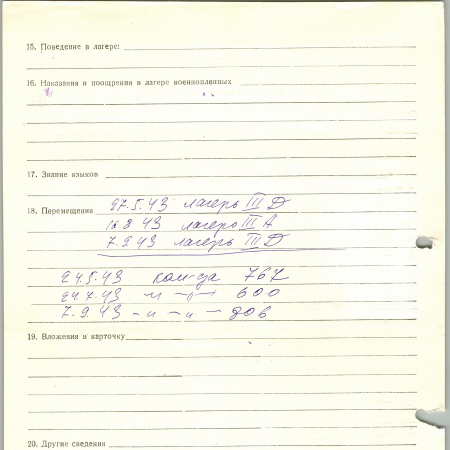 15. Поведение в лагере:
16. Наказания и поощрения в лагере военнопленных
17. Знание языков
18. Перемещения 27.5.43 лагерь III D
16 8 43 лагерь III A
7.9 43 лагерь III D
24.5.43 ком-да 767
24.7.43 -"- 600
7.9.43 -"-"- дов
19. Вложения в карточку
20. Другие сведения